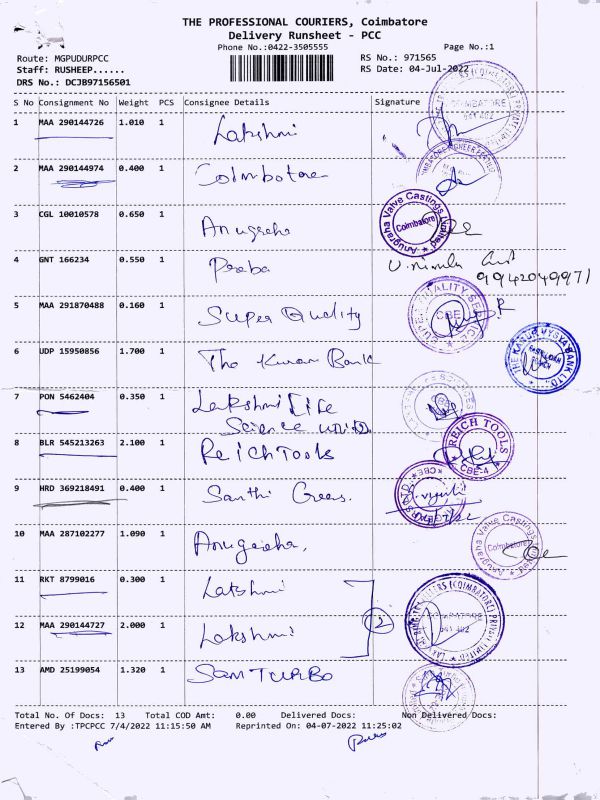 THE PROFESSIONAL COURIERS, Coimbatore
Delivery Runsheet - PCC
Phone No.:0422-3505555 Page No.:1
Route: MGPUDURPCC RS No.: 971565
Staff: RUSHEEP...... RS Date: 04-Jul-2022
DRS No.: DCJB97156501
S No Consignment No Weight PCS Consignee Details Signature
1 MAA 290144726 1.010 1 Lakshmi
2 MAA 290144974 0.400 1 Coimbotore
3 CGL 10010578 0.650 1 Anugraha
4 GNT 166234 0.550 1 Praba
9942049971
5 MAA 291870488 0.160 1 Super Quality
6 UDP 15950856 1.700 1 The Karur Bank
7 PON 5462404 0.350 1 Lakshmi Life
Science
8 BLR 545213263 2.100 1 Reich Tools
9 HRD 369218491 0.400 1 Santhi Gears.
10 MAA 287102277 1.090 1 Anugraha,
11 RKT 8799016 0.300 1 Lakshmi
2
12 MAA 290144727 2.000 1 Lakshmi
13 AMD 25199054 1.320 1 Sam TURBO
Anugraha Valve Castings Limited Coimbatore
CBE
THE KARUR VYSYA BANK LTD.
REICH TOOLS CBE-4
Anugraha Valve Castings Limited Coimbatore
Total No. Of Docs: 13 Total COD Amt: 0.00 Delivered Docs: Non Delivered Docs:
Entered By :TPCPCC 7/4/2022 11:15:50 AM Reprinted On: 04-07-2022 11:25:02